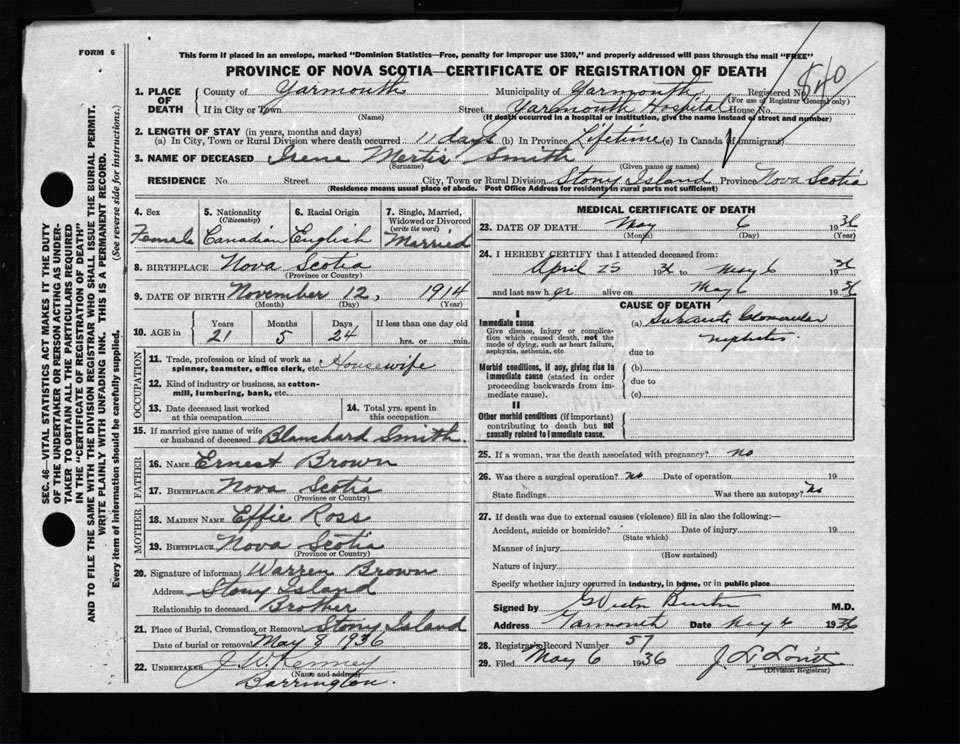 FORM 6
This form if placed in an envelope, marked "Dominion Statistics—Free, penalty for improper use $300," and properly addressed will pass through the mail "FREE"
PROVINCE OF NOVA SCOTIA—CERTIFICATE OF REGISTRATION OF DEATH
840
1. PLACE OF DEATH
County of Yarmouth Municipality of Yarmouth Registered No.
(For use of Registrar General only)
If in City or Town Street Yarmouth Hospital House No.
(Name) (If death occurred in a hospital or institution, give the name instead of street and number)
2. LENGTH OF STAY (in years, months and days)
(a) In City, Town or Rural Division where death occurred 11 days (b) In Province Lifetime (c) In Canada (if immigrant)
3. NAME OF DECEASED Irene Mertis Smith
(Surname) (Given name or names)
RESIDENCE No. Street City, Town or Rural Division Stony Island Province Nova Scotia
(Residence means usual place of abode. Post Office Address for residents in rural parts not sufficient)
4. Sex Female
5. Nationality (Citizenship) Canadian
6. Racial Origin English
7. Single, Married, Widowed or Divorced (write the word) Married
8. BIRTHPLACE Nova Scotia
(Province or Country)
9. DATE OF BIRTH November 12, 1914
(Month) (Day) (Year)
10. AGE in Years Months Days If less than one day old
21 5 24 hrs. or min.
OCCUPATION
11. Trade, profession or kind of work as spinner, teamster, office clerk, etc. Housewife
12. Kind of industry or business, as cotton-mill, lumbering, bank, etc.
13. Date deceased last worked at this occupation
14. Total yrs. spent in this occupation
15. If married give name of wife or husband of deceased Blanchard Smith.
FATHER
16. NAME Ernest Brown
17. BIRTHPLACE Nova Scotia
(Province or Country)
MOTHER
18. MAIDEN NAME Effie Ross
19. BIRTHPLACE Nova Scotia
(Province or Country)
20. Signature of informant Warren Brown
Address Stony Island
Relationship to deceased Brother
21. Place of Burial, Cremation or Removal Stony Island
Date of burial or removal May 9 1936
22. UNDERTAKER J. W. Kenney
(Name and address)
Barrington.
MEDICAL CERTIFICATE OF DEATH
23. DATE OF DEATH May 6 1936
(Month) (Day) (Year)
24. I HEREBY CERTIFY that I attended deceased from:
April 25 1936 to May 6 1936
and last saw her alive on May 6 1936
CAUSE OF DEATH
I
Immediate cause
Give disease, injury or complication which caused death, not the mode of dying, such as heart failure, asphyxia, asthenia, etc.
(a) Subacute Glomerular
nephritis.
due to
Morbid conditions, if any, giving rise to immediate cause (stated in order proceeding backwards from immediate cause).
(b)
due to
(c)
II
Other morbid conditions (if important) contributing to death but not causally related to immediate cause.
25. If a woman, was the death associated with pregnancy? no
26. Was there a surgical operation? no Date of operation 19
State findings Was there an autopsy? no
27. If death was due to external causes (violence) fill in also the following:—
Accident, suicide or homicide? Date of injury 19
(State which)
Manner of injury
(How sustained)
Nature of injury
Specify whether injury occurred in industry, in home, or in public place
Signed by Burton M.D.
Address Yarmouth Date May 6 1936
28. Registrar's Record Number 57
29. Filed May 6 1936
(Division Registrar)
SEC. 46—VITAL STATISTICS ACT MAKES IT THE DUTY
OF THE UNDERTAKER OR PERSON ACTING AS UNDER-
TAKER TO OBTAIN ALL THE PARTICULARS REQUIRED
IN THE "CERTIFICATE OF REGISTRATION OF DEATH"
AND TO FILE THE SAME WITH THE DIVISION REGISTRAR WHO SHALL ISSUE THE BURIAL PERMIT.
WRITE PLAINLY WITH UNFADING INK. THIS IS A PERMANENT RECORD.
Every item of information should be carefully supplied. (See reverse side for instructions.)